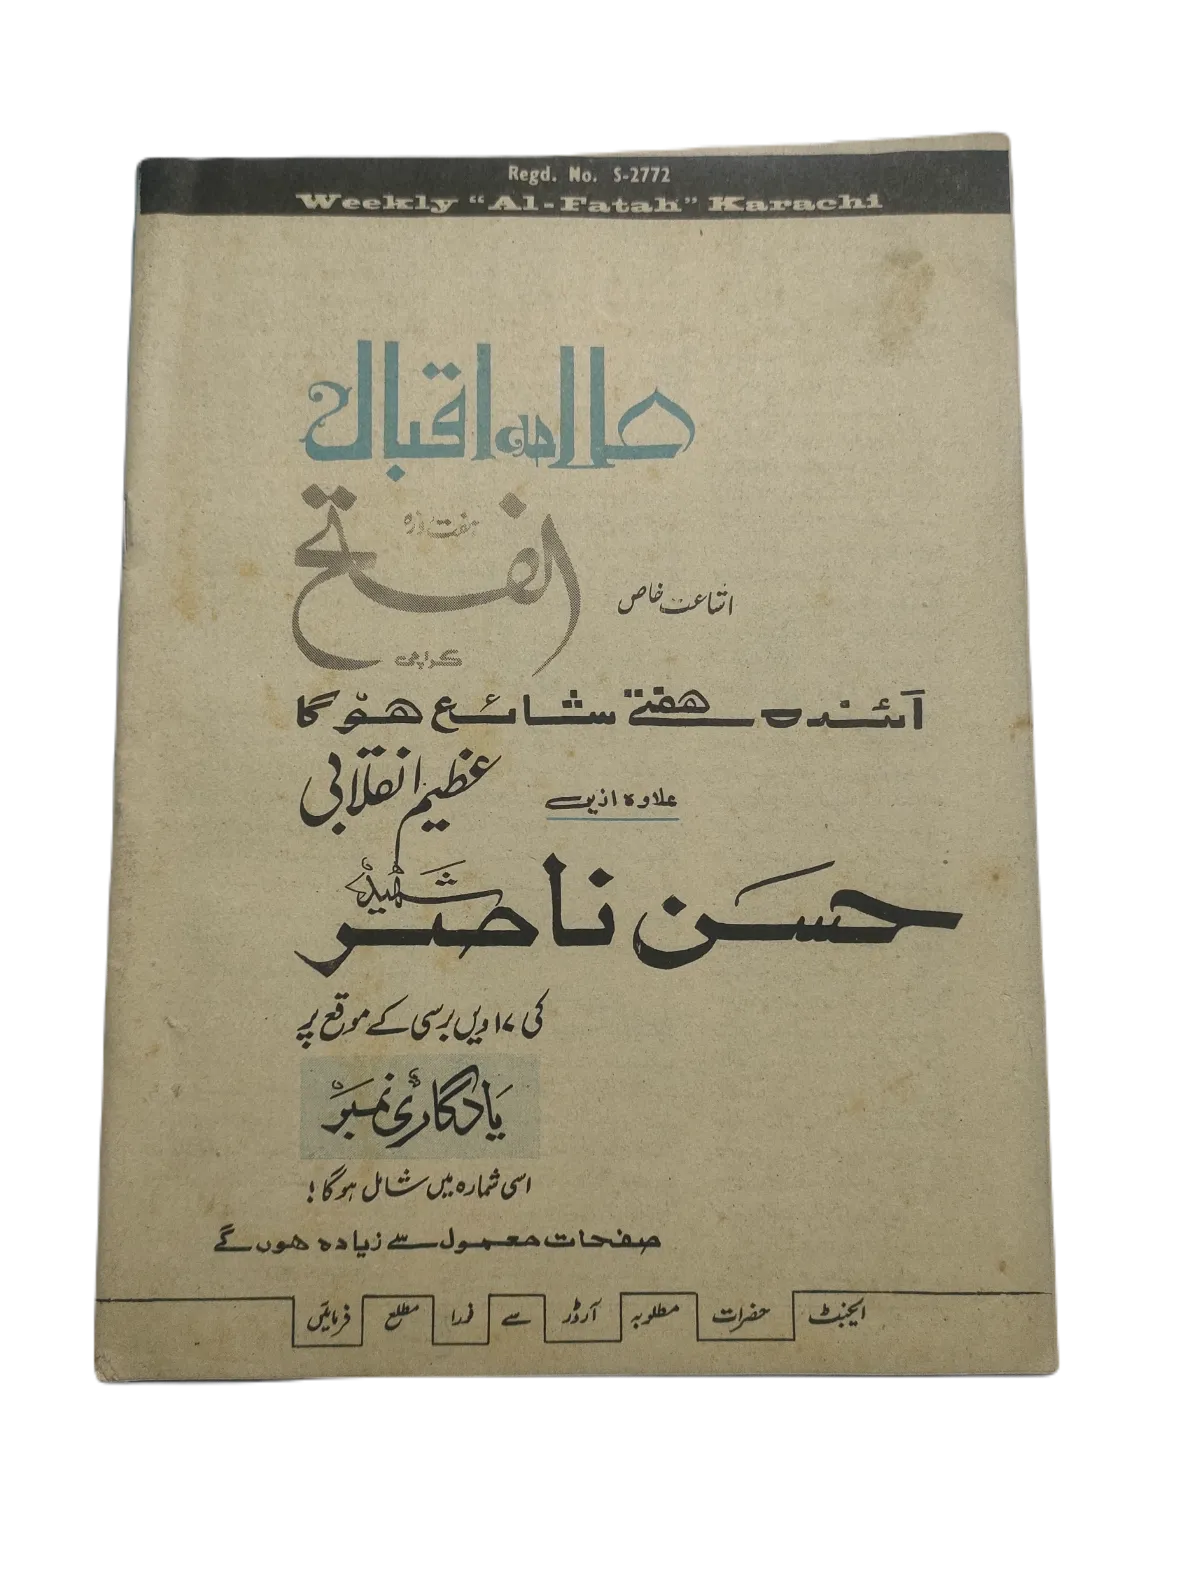 Regd. No. S-2772
Weekly "Al-Fatah" Karachi
علامہ اقبال
ہفت روزہ
الفتح
کراچی
اشاعت خاص
آئندہ ہفتے شائع ہوگا
علاوہ ازیں
عظیم انقلابی
حسن ناصر شہید
کی ۱۷ویں برسی کے موقع پر
یادگاری نمبر
اسی شمارہ میں شامل ہوگا!
صفحات معمول سے زیادہ ہوں گے
ایجنٹ حضرات مطلوبہ آرڈر سے فورا مطلع فرمائیں